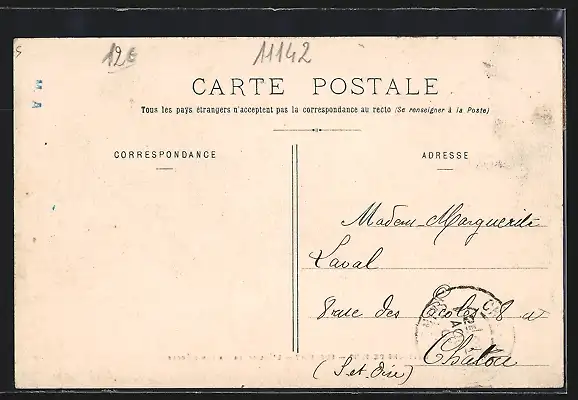 12€ 11142
M. A
CARTE POSTALE
Tous les pays étrangers n'acceptent pas la correspondance au recto (Se renseigner à la Poste)
CORRESPONDANCE
ADRESSE
Madem Marguerite
Laval
rue des Ecoles
Chatou
(S et Oise)